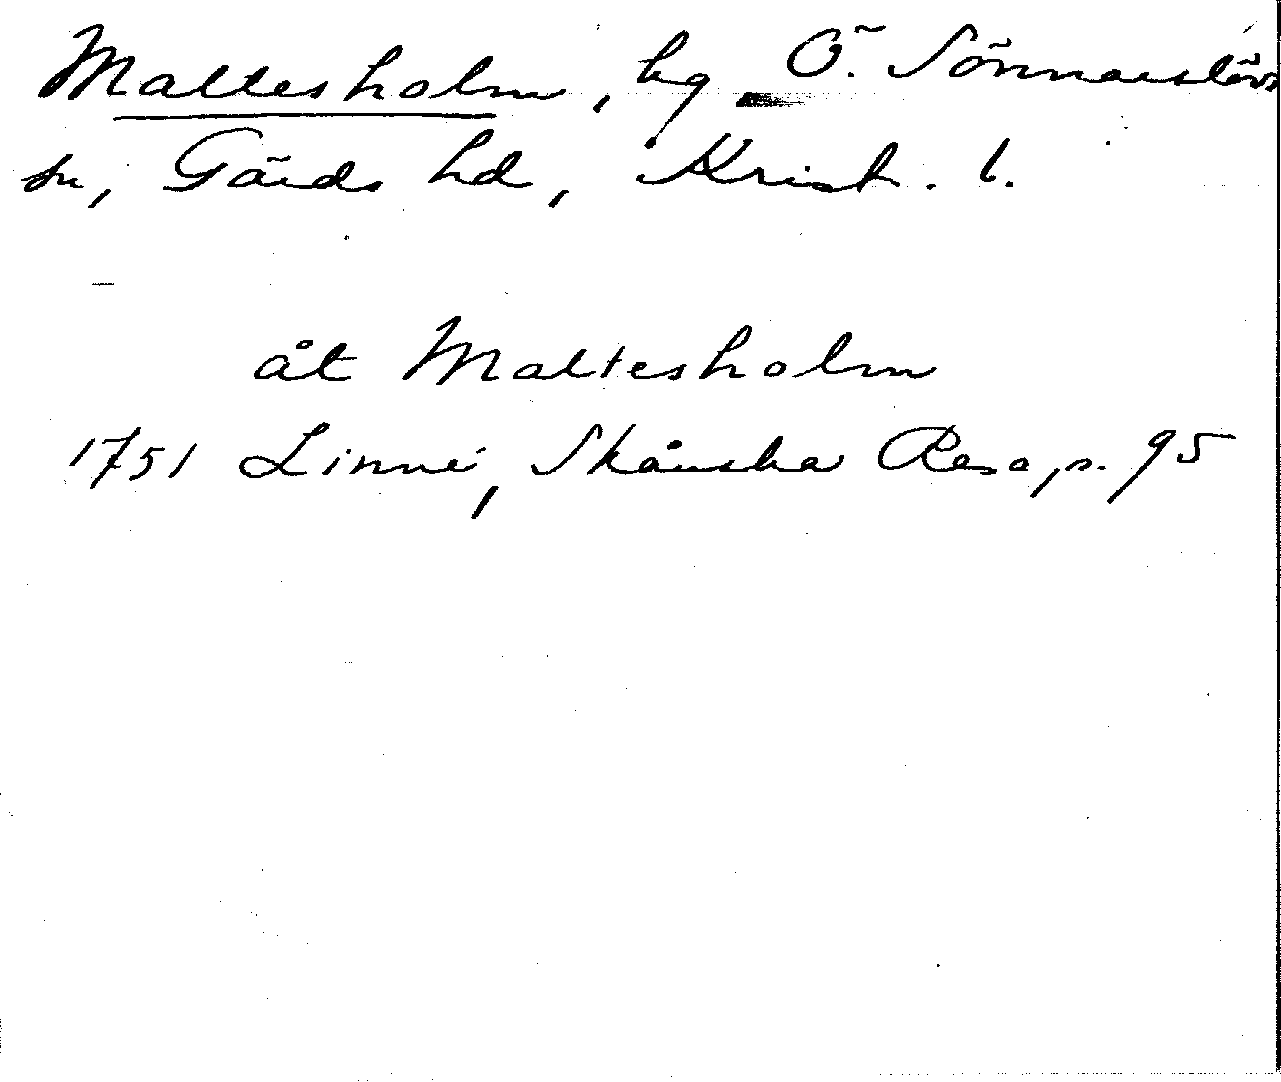 Maltesholm, hg Ö. Sönnarslövs
sn, Gärds hd, Krist. l.
åt Maltesholm
1751 Linné, Skånska Resa, s. 95